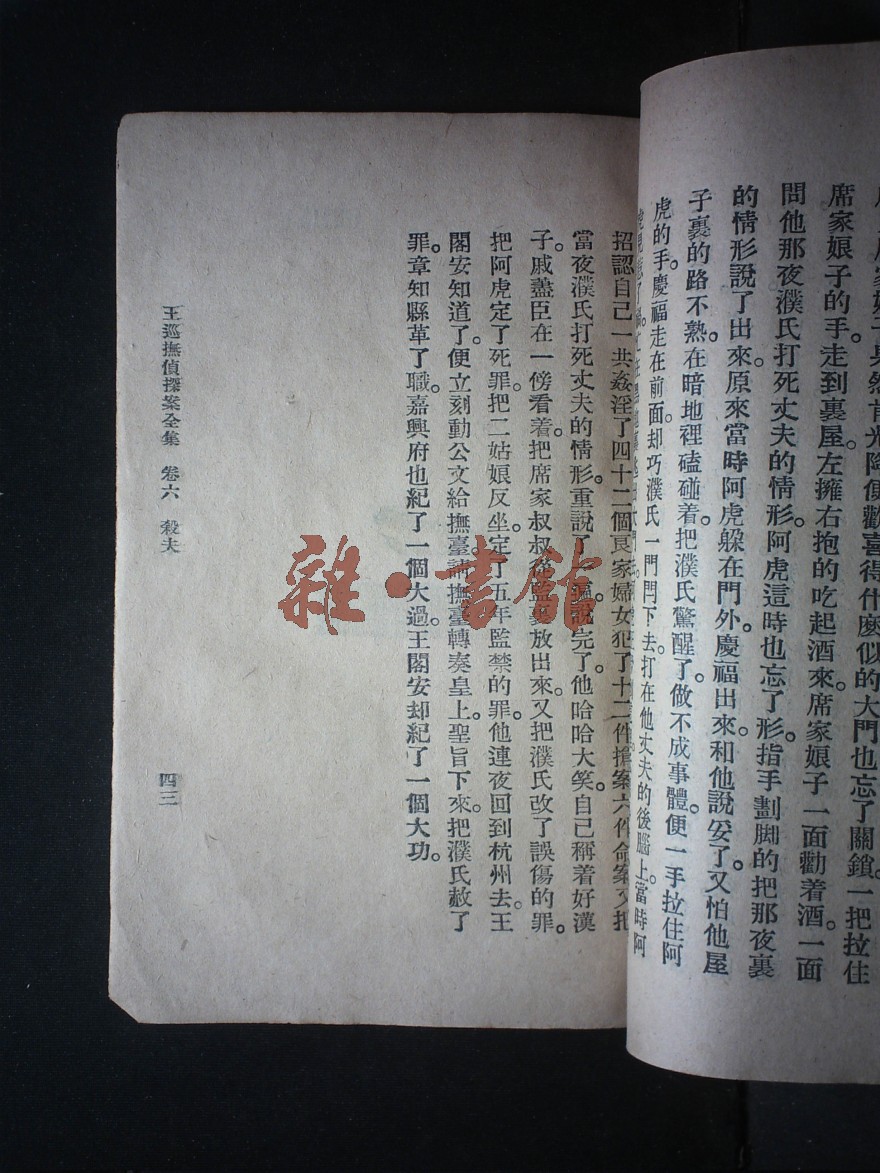 席家娘子的手走到裏屋左擁右抱的吃起酒來。席家娘子一面勸着酒。一面
問他那夜濮氏打死丈夫的情形。阿虎這時也忘了形。指手劃脚的把那夜裏
的情形說了出來。原來當時阿虎躲在門外。慶福出來和他說妥了。又怕他屋
子裏的路不熟。在暗地裡磕碰着。把濮氏驚醒了。做不成事體。便一手拉住阿
虎的手。慶福走在前面。却巧濮氏一門閂下去。打在他丈夫的後腦上。當時阿
招認自己一共姦淫了四十二個良家婦女犯了十二件搶案六件命案又把
當夜濮氏打死丈夫的情形。重說了一遍。說完了。他哈哈大笑。自己稱着好漢
子。戚藎臣在一傍看着。把席家叔叔從監裏放出來。又把濮氏改了誤傷的罪。
把阿虎定了死罪。把二姑娘反坐。定了五年監禁的罪。他連夜回到杭州去。王
閣安知道了。便立刻動公文給撫臺。請撫臺轉奏皇上。聖旨下來。把濮氏赦了
罪。章知縣革了職。嘉興府也紀了一個大過。王閣安却紀了一個大功。
王巡撫偵探案全集 卷六 殺夫
四三
雜·書館